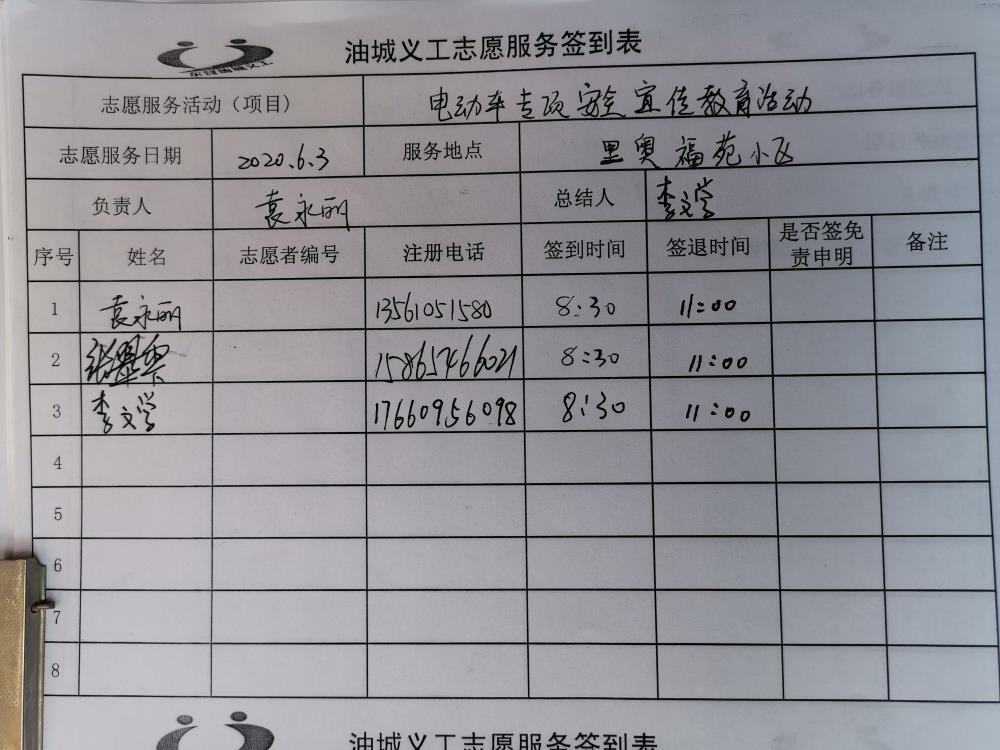 油城义工志愿服务签到表
志愿服务活动（项目） 电动车专项安全宣传教育活动
志愿服务日期 2020.6.3 服务地点 里奥福苑小区
负责人 袁永丽 总结人 李文学
序号 姓名 志愿者编号 注册电话 签到时间 签退时间 是否签免责申明 备注
1 袁永丽 13561051580 8:30 11:00
2 张 15865466021 8:30 11:00
3 李文学 17660956098 8:30 11:00
4
5
6
7
8
油城义工志愿服务签到表